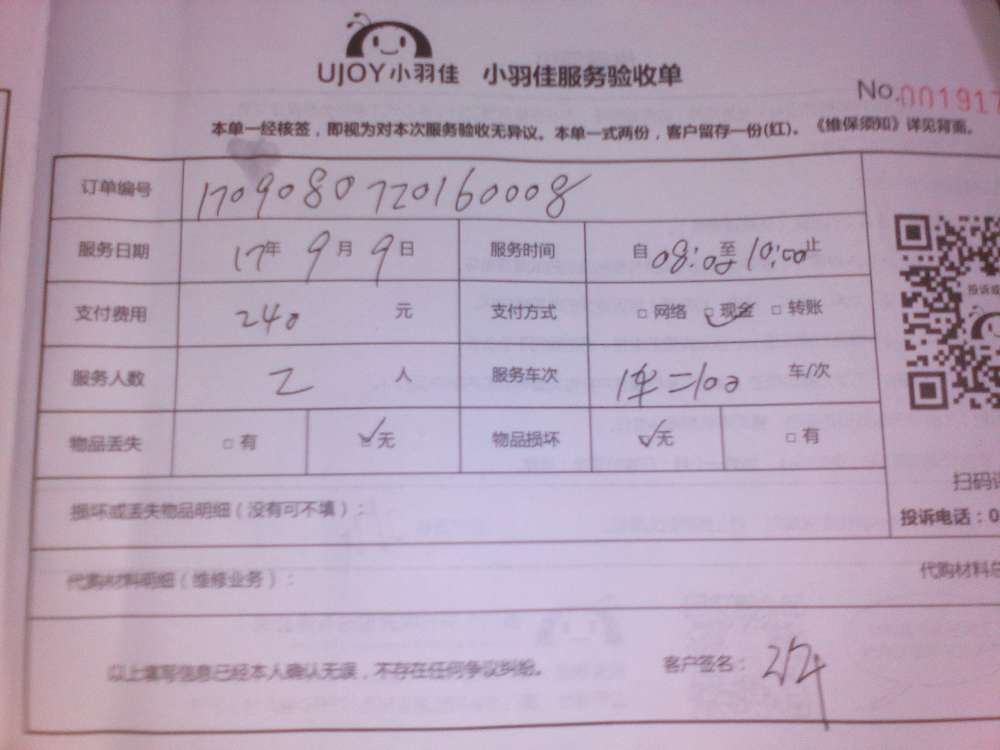 UJOY小羽佳 小羽佳服务验收单
No.001917
本单一经核签，即视为对本次服务验收无异议。本单一式两份，客户留存一份(红)。《维保须知》详见背面。
订单编号 17090807720160008
服务日期 17年 9月 9日 服务时间 自08:00至10:00止
支付费用 240 元 支付方式 □网络 □现金 □转账
服务人数 2 人 服务车次 车/次
物品丢失 □有 □无 物品损坏 □无 □有
损坏或丢失物品明细（没有可不填）：
扫码
投诉电话：0
代购材料明细（维修业务）：
代购材料总
以上填写信息已经本人确认无误，不存在任何争议纠纷。 客户签名：